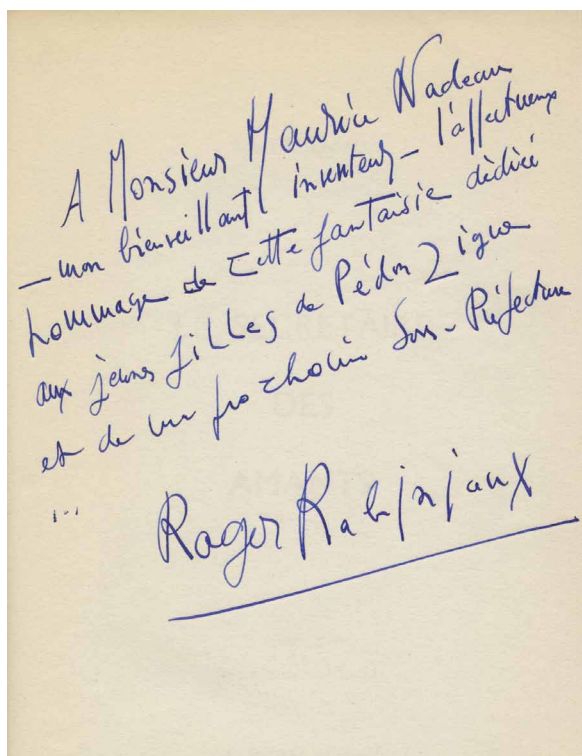 A Monsieur Maurice Nadeau
— mon bienveillant inventeur — l'affectueux
hommage de cette fantaisie dédiée
aux jeunes filles de Pédonzigue
et de la prochaine Sous-Préfecture
...
Roger Rabiniaux
DES
AMANTS